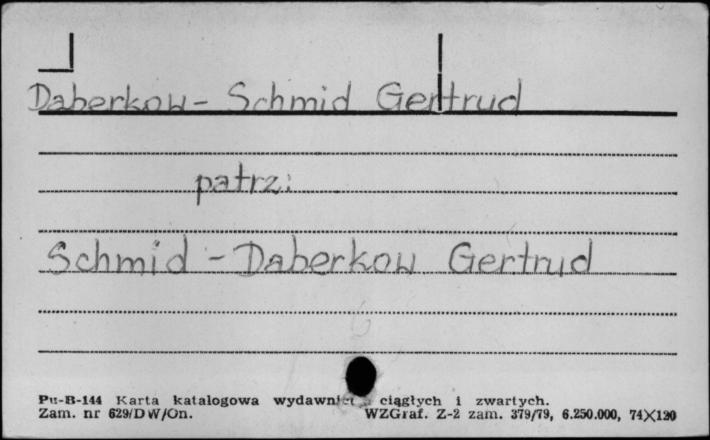 Daberkow - Schmid Gertrud
patrz:
Schmid - Daberkow Gertrud
Pu-B-144 Karta katalogowa wydawnict ciągłych i zwartych.
Zam. nr 629/DW/On. WZGraf. Z-2 zam. 379/79, 6.250.000, 74×120